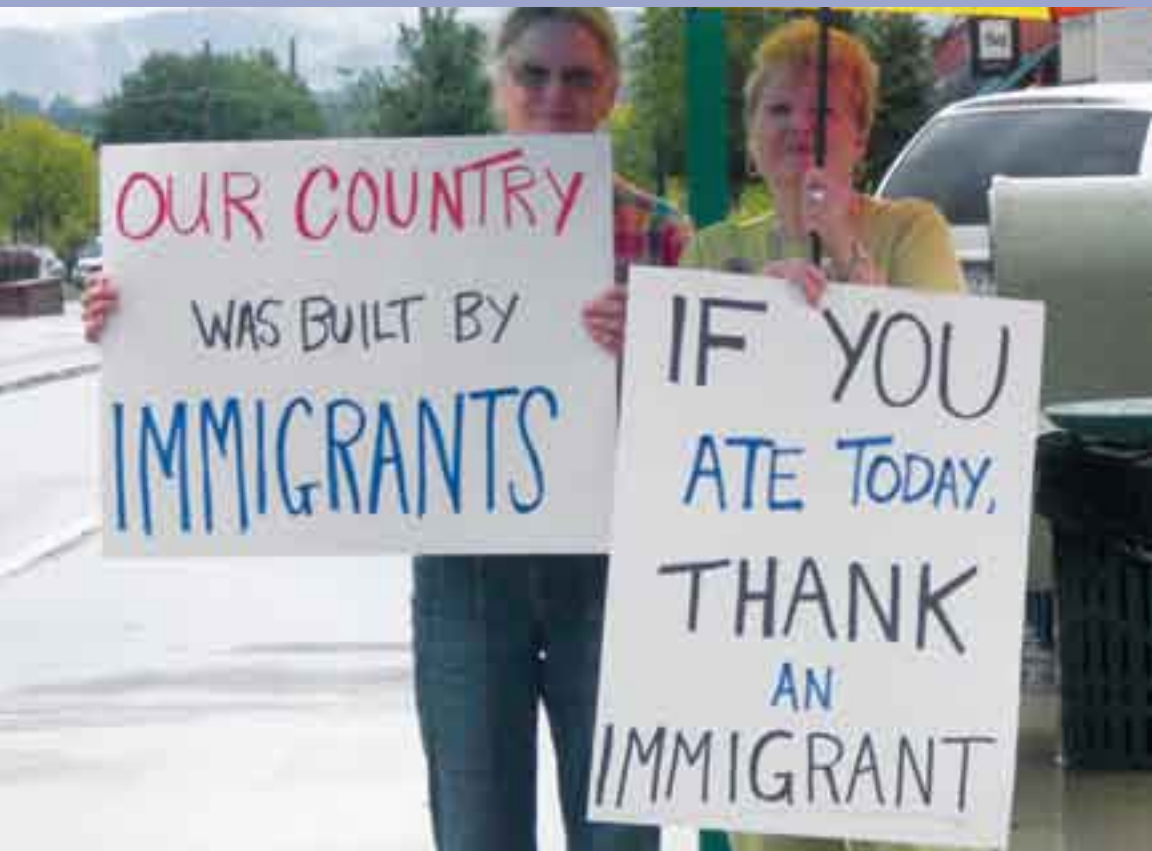 OUR COUNTRY
WAS BUILT BY
IMMIGRANTS
IF YOU
ATE TODAY,
THANK
AN
IMMIGRANT